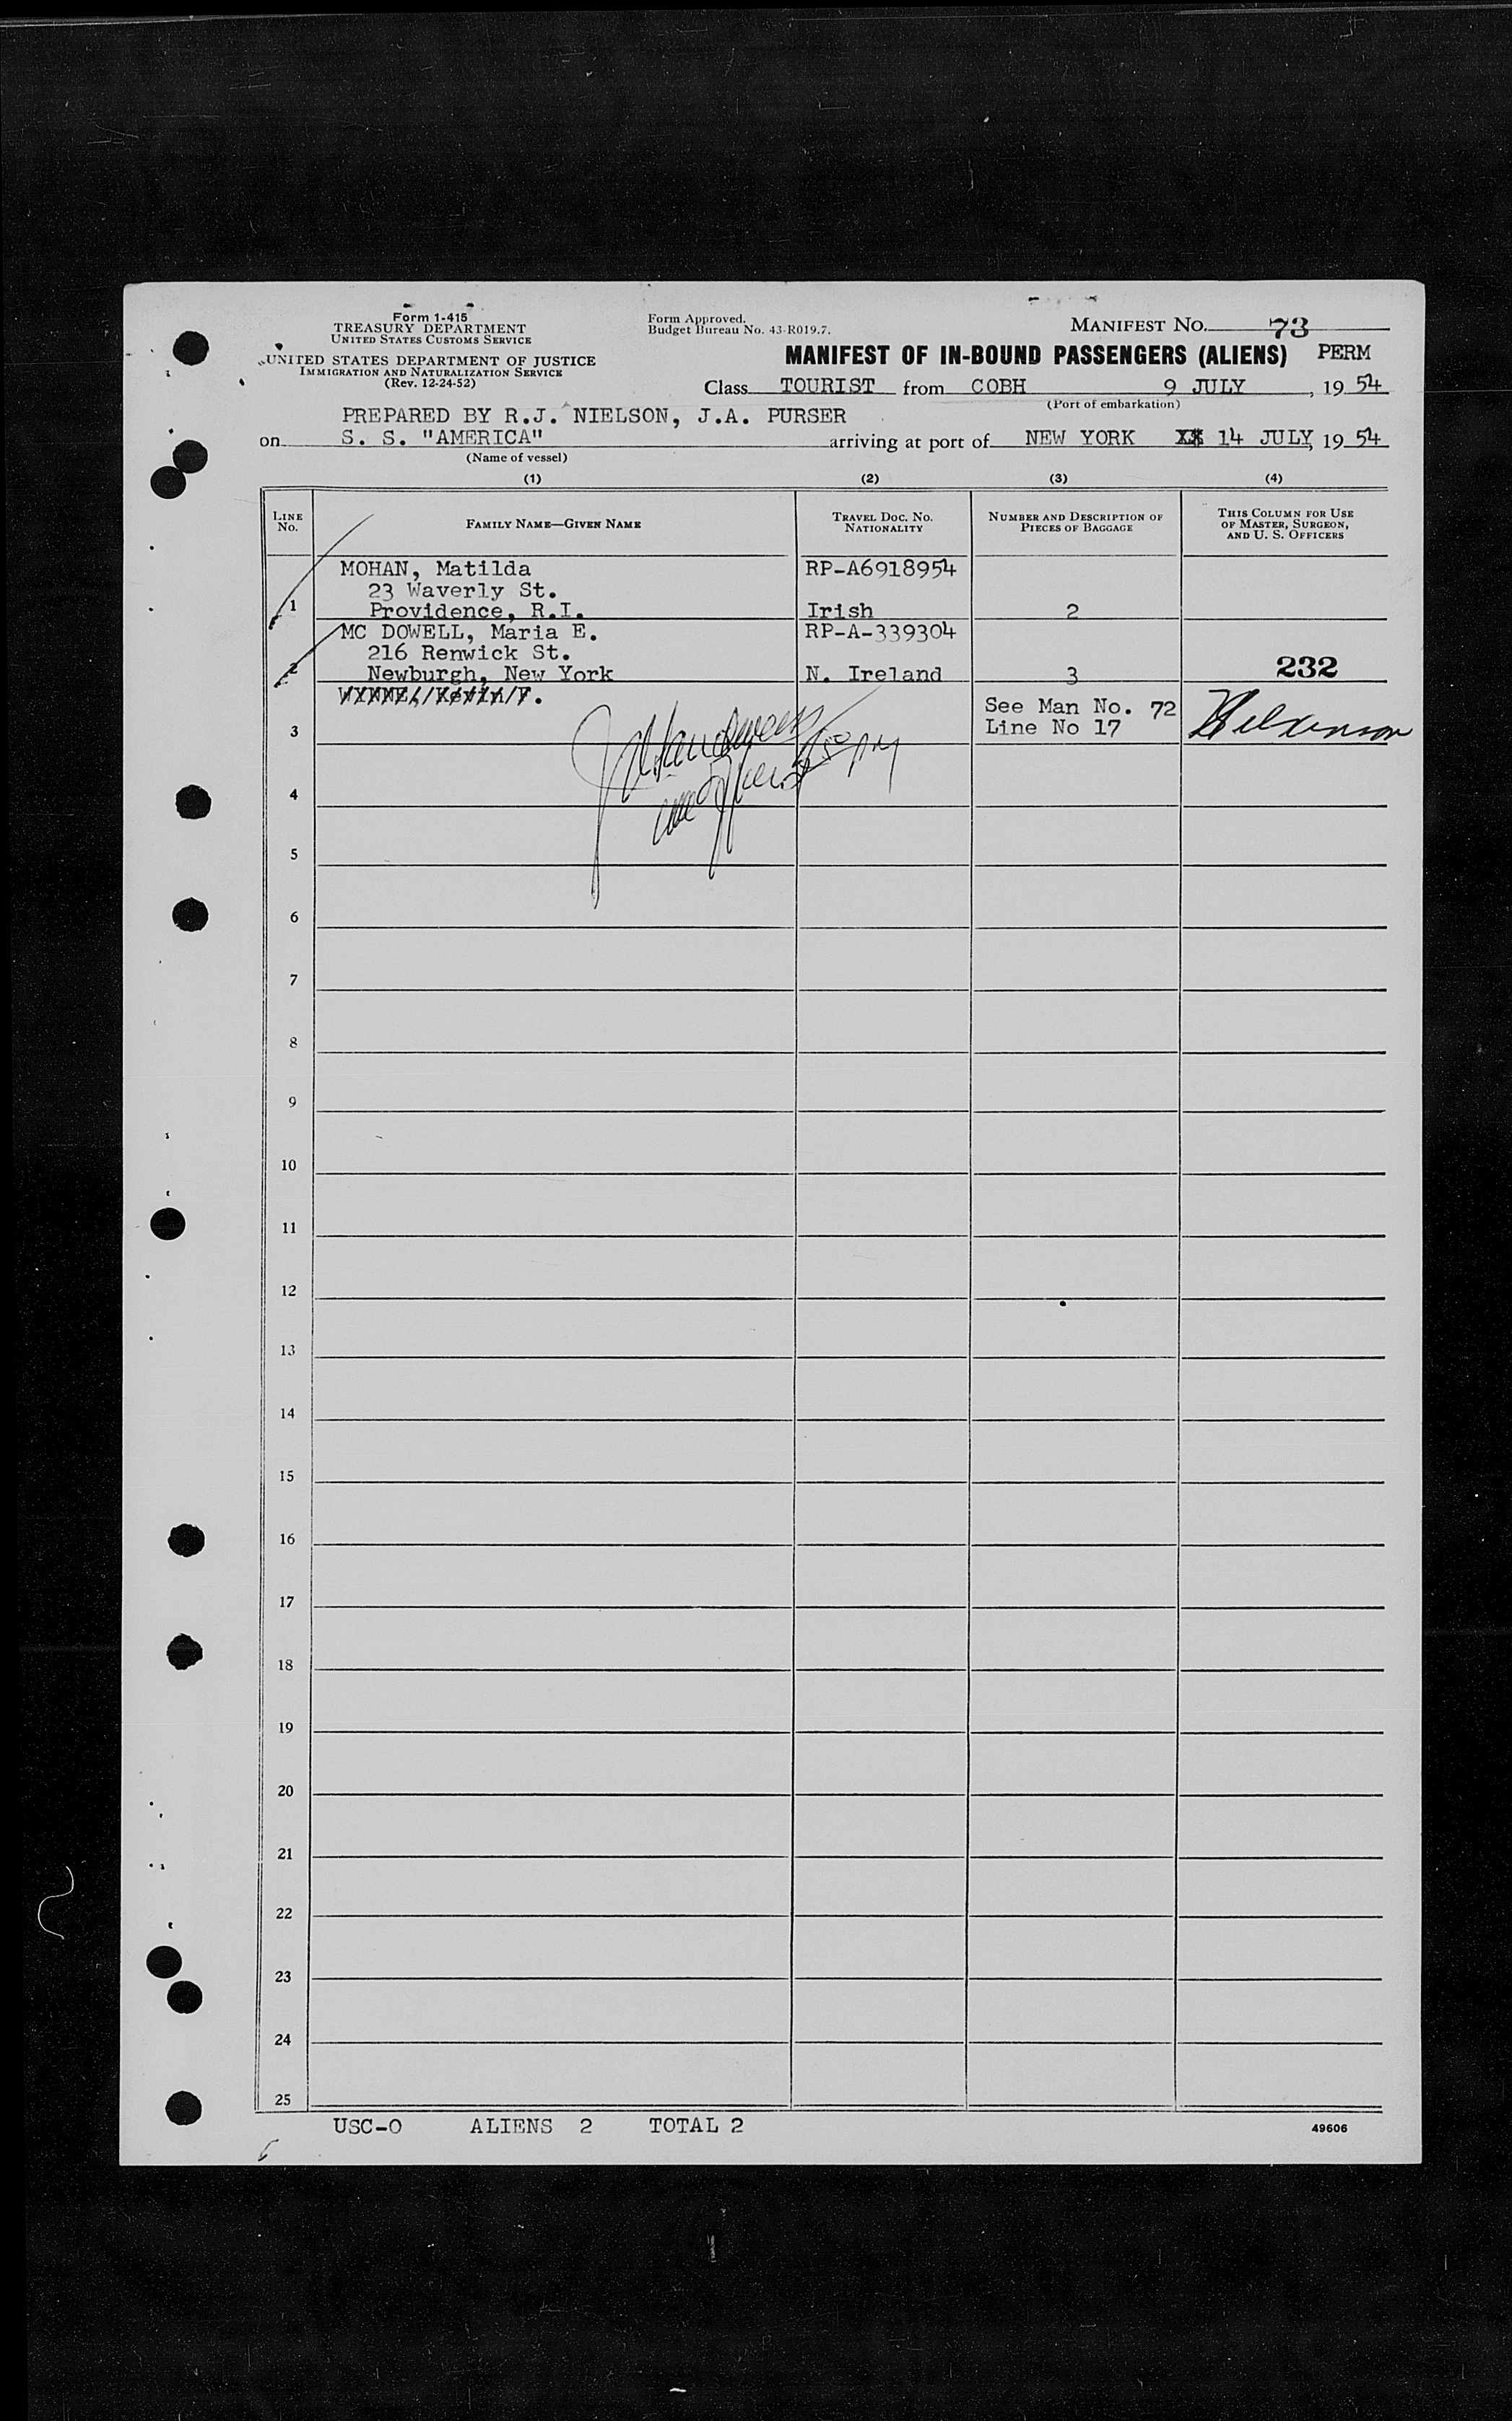 Form I-415
TREASURY DEPARTMENT
UNITED STATES CUSTOMS SERVICE
UNITED STATES DEPARTMENT OF JUSTICE
IMMIGRATION AND NATURALIZATION SERVICE
(Rev. 12-24-52)
Form Approved.
Budget Bureau No. 43-R019.7.
MANIFEST NO. 73
MANIFEST OF IN-BOUND PASSENGERS (ALIENS) PERM
Class TOURIST from COBH 9 JULY, 19 54
(Port of embarkation)
PREPARED BY R.J. NIELSON, J.A. PURSER
on S. S. "AMERICA" arriving at port of NEW YORK 14 JULY, 19 54
(Name of vessel)
(1) (2) (3) (4)
LINE NO. FAMILY NAME—GIVEN NAME TRAVEL DOC. NO. NATIONALITY NUMBER AND DESCRIPTION OF PIECES OF BAGGAGE THIS COLUMN FOR USE OF MASTER, SURGEON, AND U. S. OFFICERS
MOHAN, Matilda RP-A6918954
23 Waverly St.
1 Providence, R.I. Irish 2
MC DOWELL, Maria E. RP-A-339304
216 Renwick St.
2 Newburgh, New York N. Ireland 3 232
See Man No. 72
3 Line No 17 Wilkinson
4
5
6
7
8
9
10
11
12
13
14
15
16
17
18
19
20
21
22
23
24
25
USC-0 ALIENS 2 TOTAL 2
49606